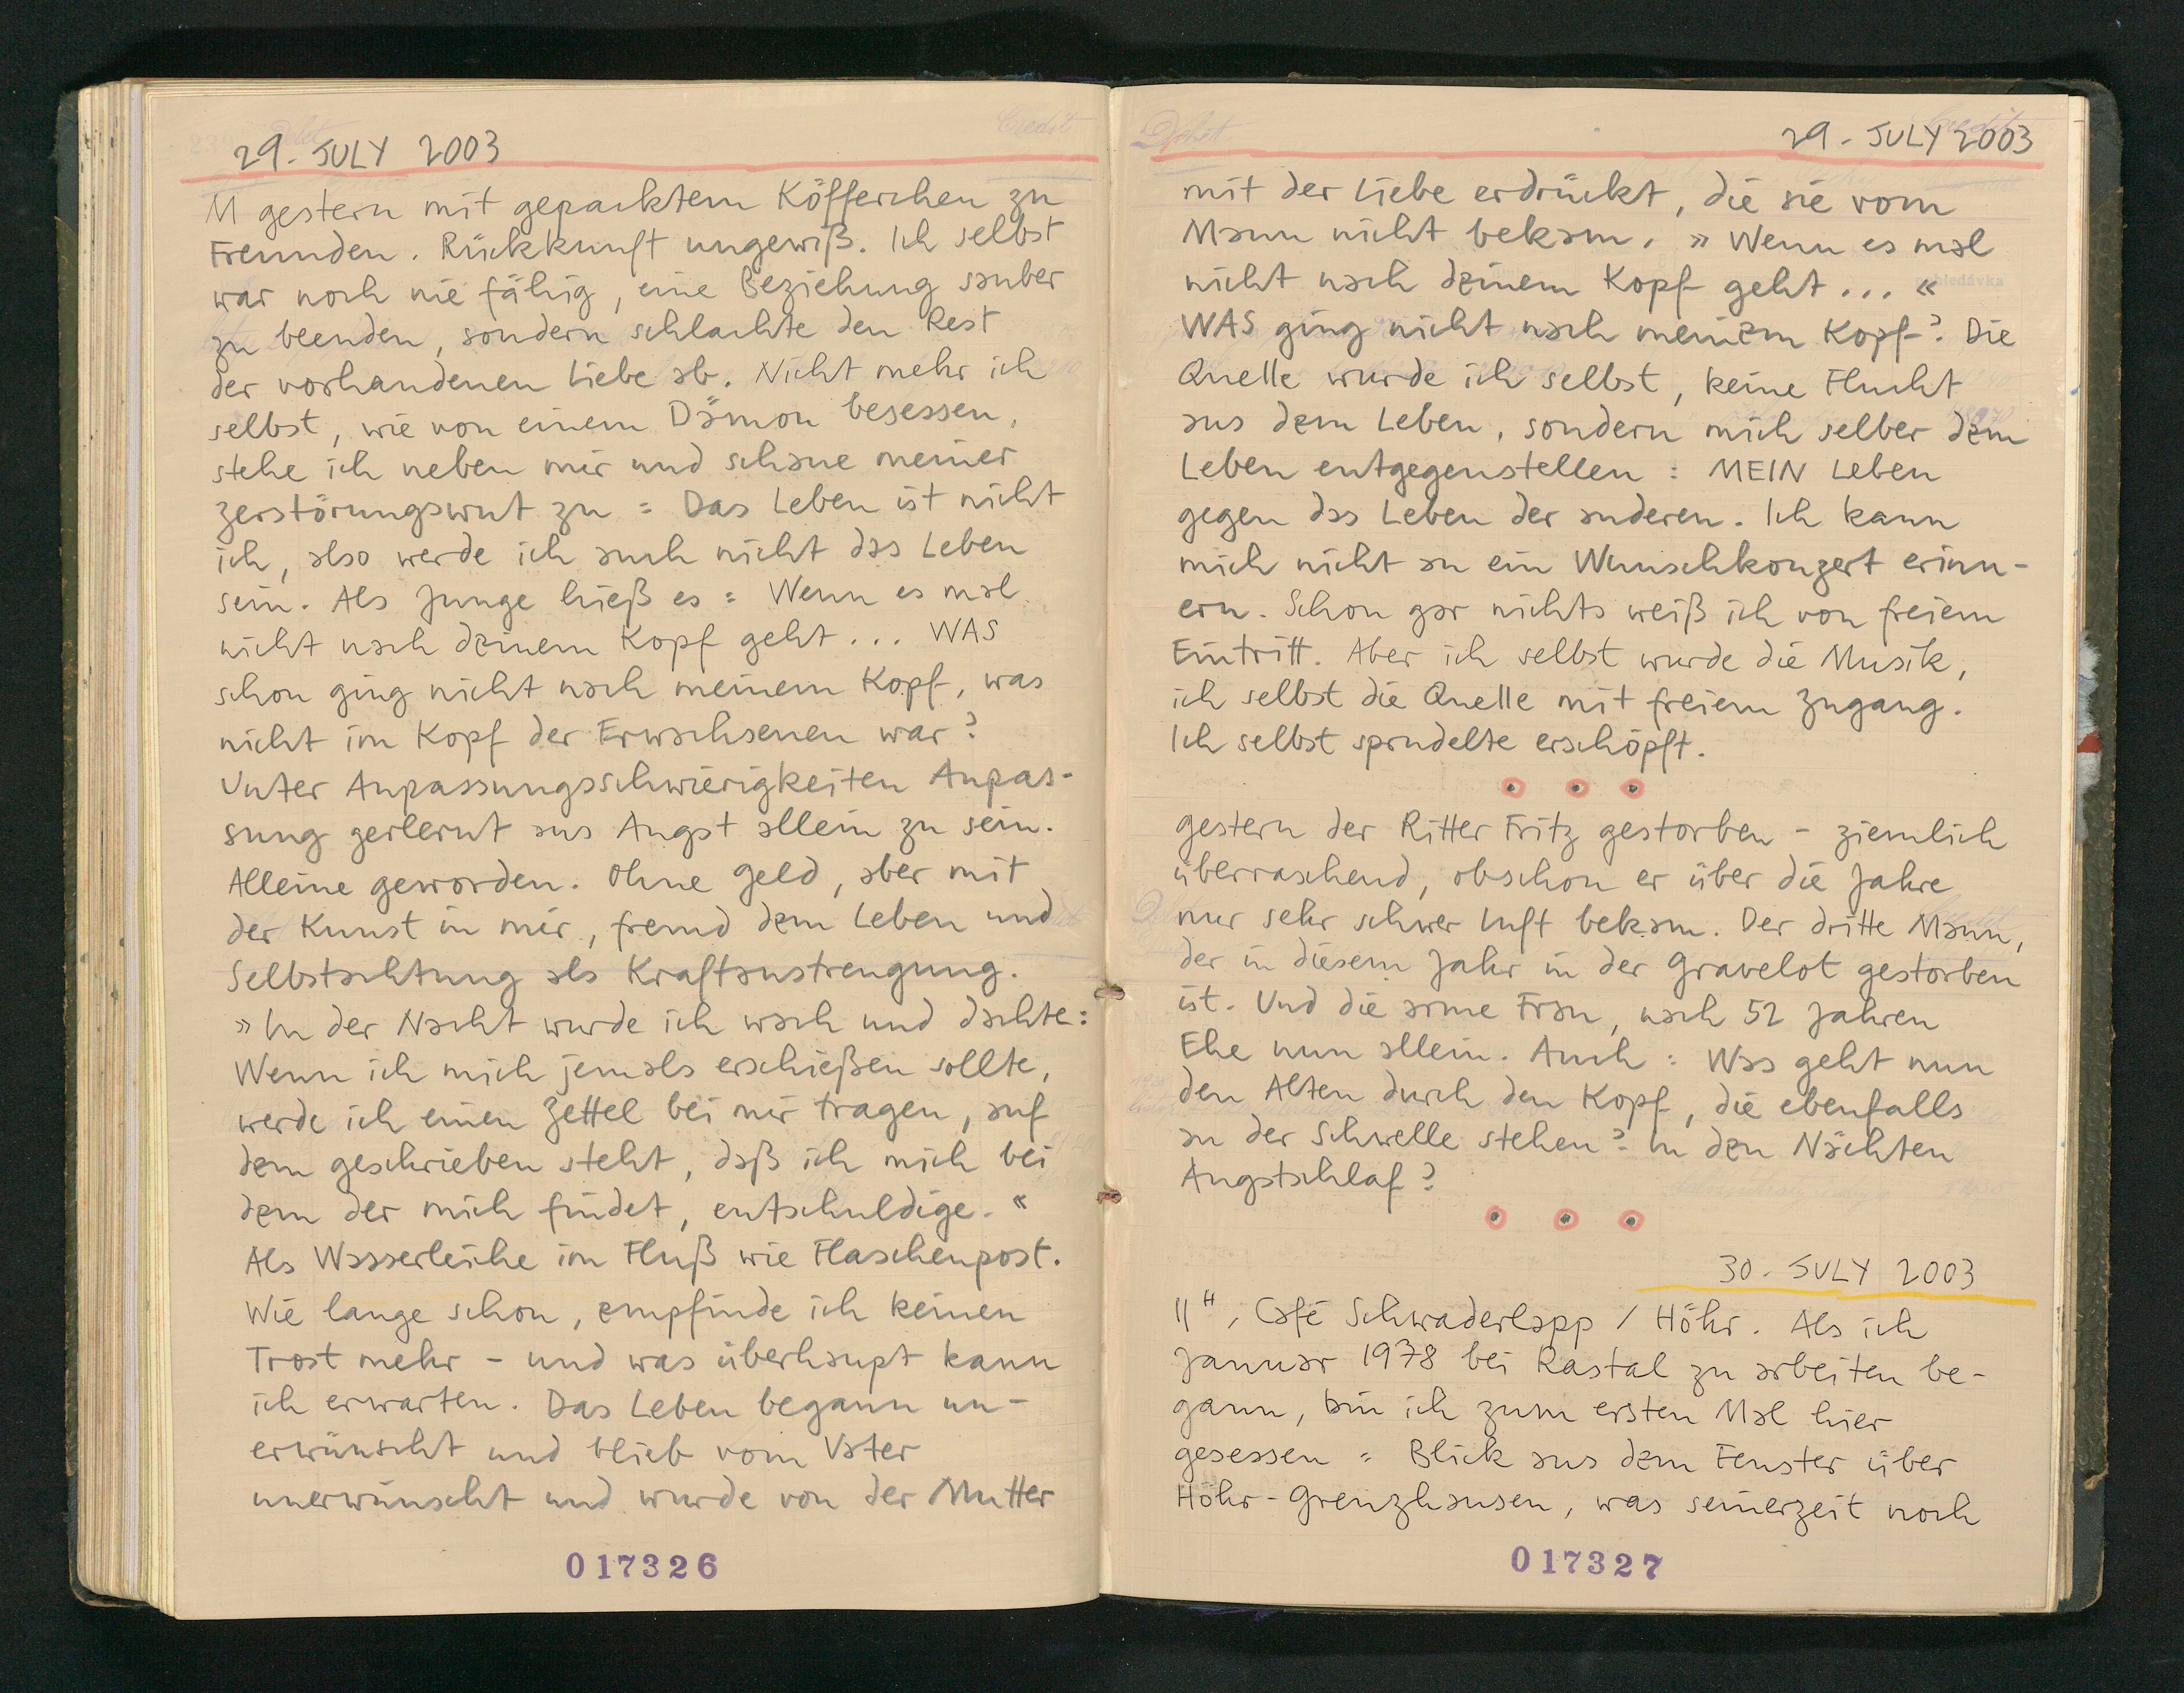 29. JULY 2003
M gestern mit gepacktem Köfferchen zu
Freunden. Rückkunft ungewiß. Ich selbst
war noch nie fähig, eine Beziehung sauber
zu beenden, sondern schlachte den Rest
der vorhandenen Liebe ab. Nicht mehr ich
selbst, wie von einem Dämon besessen,
stehe ich neben mir und schaue meiner
Zerstörungswut zu : Das Leben ist nicht
ich, also werde ich auch nicht das Leben
sein. Als Junge hieß es : Wenn es mal
nicht nach deinem Kopf geht... WAS
schon ging nicht nach meinem Kopf, was
nicht im Kopf der Erwachsenen war?
Unter Anpassungsschwierigkeiten Anpas-
sung gerlernt aus Angst allein zu sein.
Alleine geworden. Ohne Geld, aber mit
der Kunst in mir, fremd dem Leben und
Selbstachtung als Kraftanstrengung.
»In der Nacht wurde ich wach und dachte:
Wenn ich mich jemals erschießen sollte,
werde ich einen Zettel bei mir tragen, auf
dem geschrieben steht, daß ich mich bei
dem der mich findet, entschuldige.«
Als Wasserleiche im Fluß wie Flaschenpost.
Wie lange schon, empfinde ich keinen
Trost mehr – und was überhaupt kann
ich erwarten. Das Leben begann un-
erwünscht und blieb vom Vater
unerwünscht und wurde von der Mutter
017326
Debet
Credit
29. JULY 2003
mit der Liebe erdrückt, die sie vom
Mann nicht bekam. »Wenn es mal
nicht nach deinem Kopf geht...«
WAS ging nicht nach meinem Kopf? Die
Quelle wurde ich selbst, keine Flucht
aus dem Leben, sondern mich selber dem
Leben entgegenstellen : MEIN Leben
gegen das Leben der anderen. Ich kann
mich nicht an ein Wunschkonzert erinn-
ern. Schon gar nichts weiß ich von freiem
Eintritt. Aber ich selbst wurde die Musik,
ich selbst die Quelle mit freiem Zugang.
Ich selbst sprudelte erschöpft.
gestern der Ritter Fritz gestorben – ziemlich
überraschend, obschon er über die Jahre
nur sehr schwer Luft bekam. Der dritte Mann,
der in diesem Jahr in der Gravelot gestorben
ist. Und die arme Frau, nach 52 Jahren
Ehe nun allein. Auch : Was geht nun
den Alten durch den Kopf, die ebenfalls
an der Schwelle stehen? In den Nächten
Angstschlaf?
30. JULY 2003
11", Café Schwaderlapp / Höhr. Als ich
Januar 1978 bei Rastal zu arbeiten be-
gann, bin ich zum ersten Mal hier
gesessen : Blick aus dem Fenster über
Höhr-Grenzhausen, was seinerzeit noch
017327